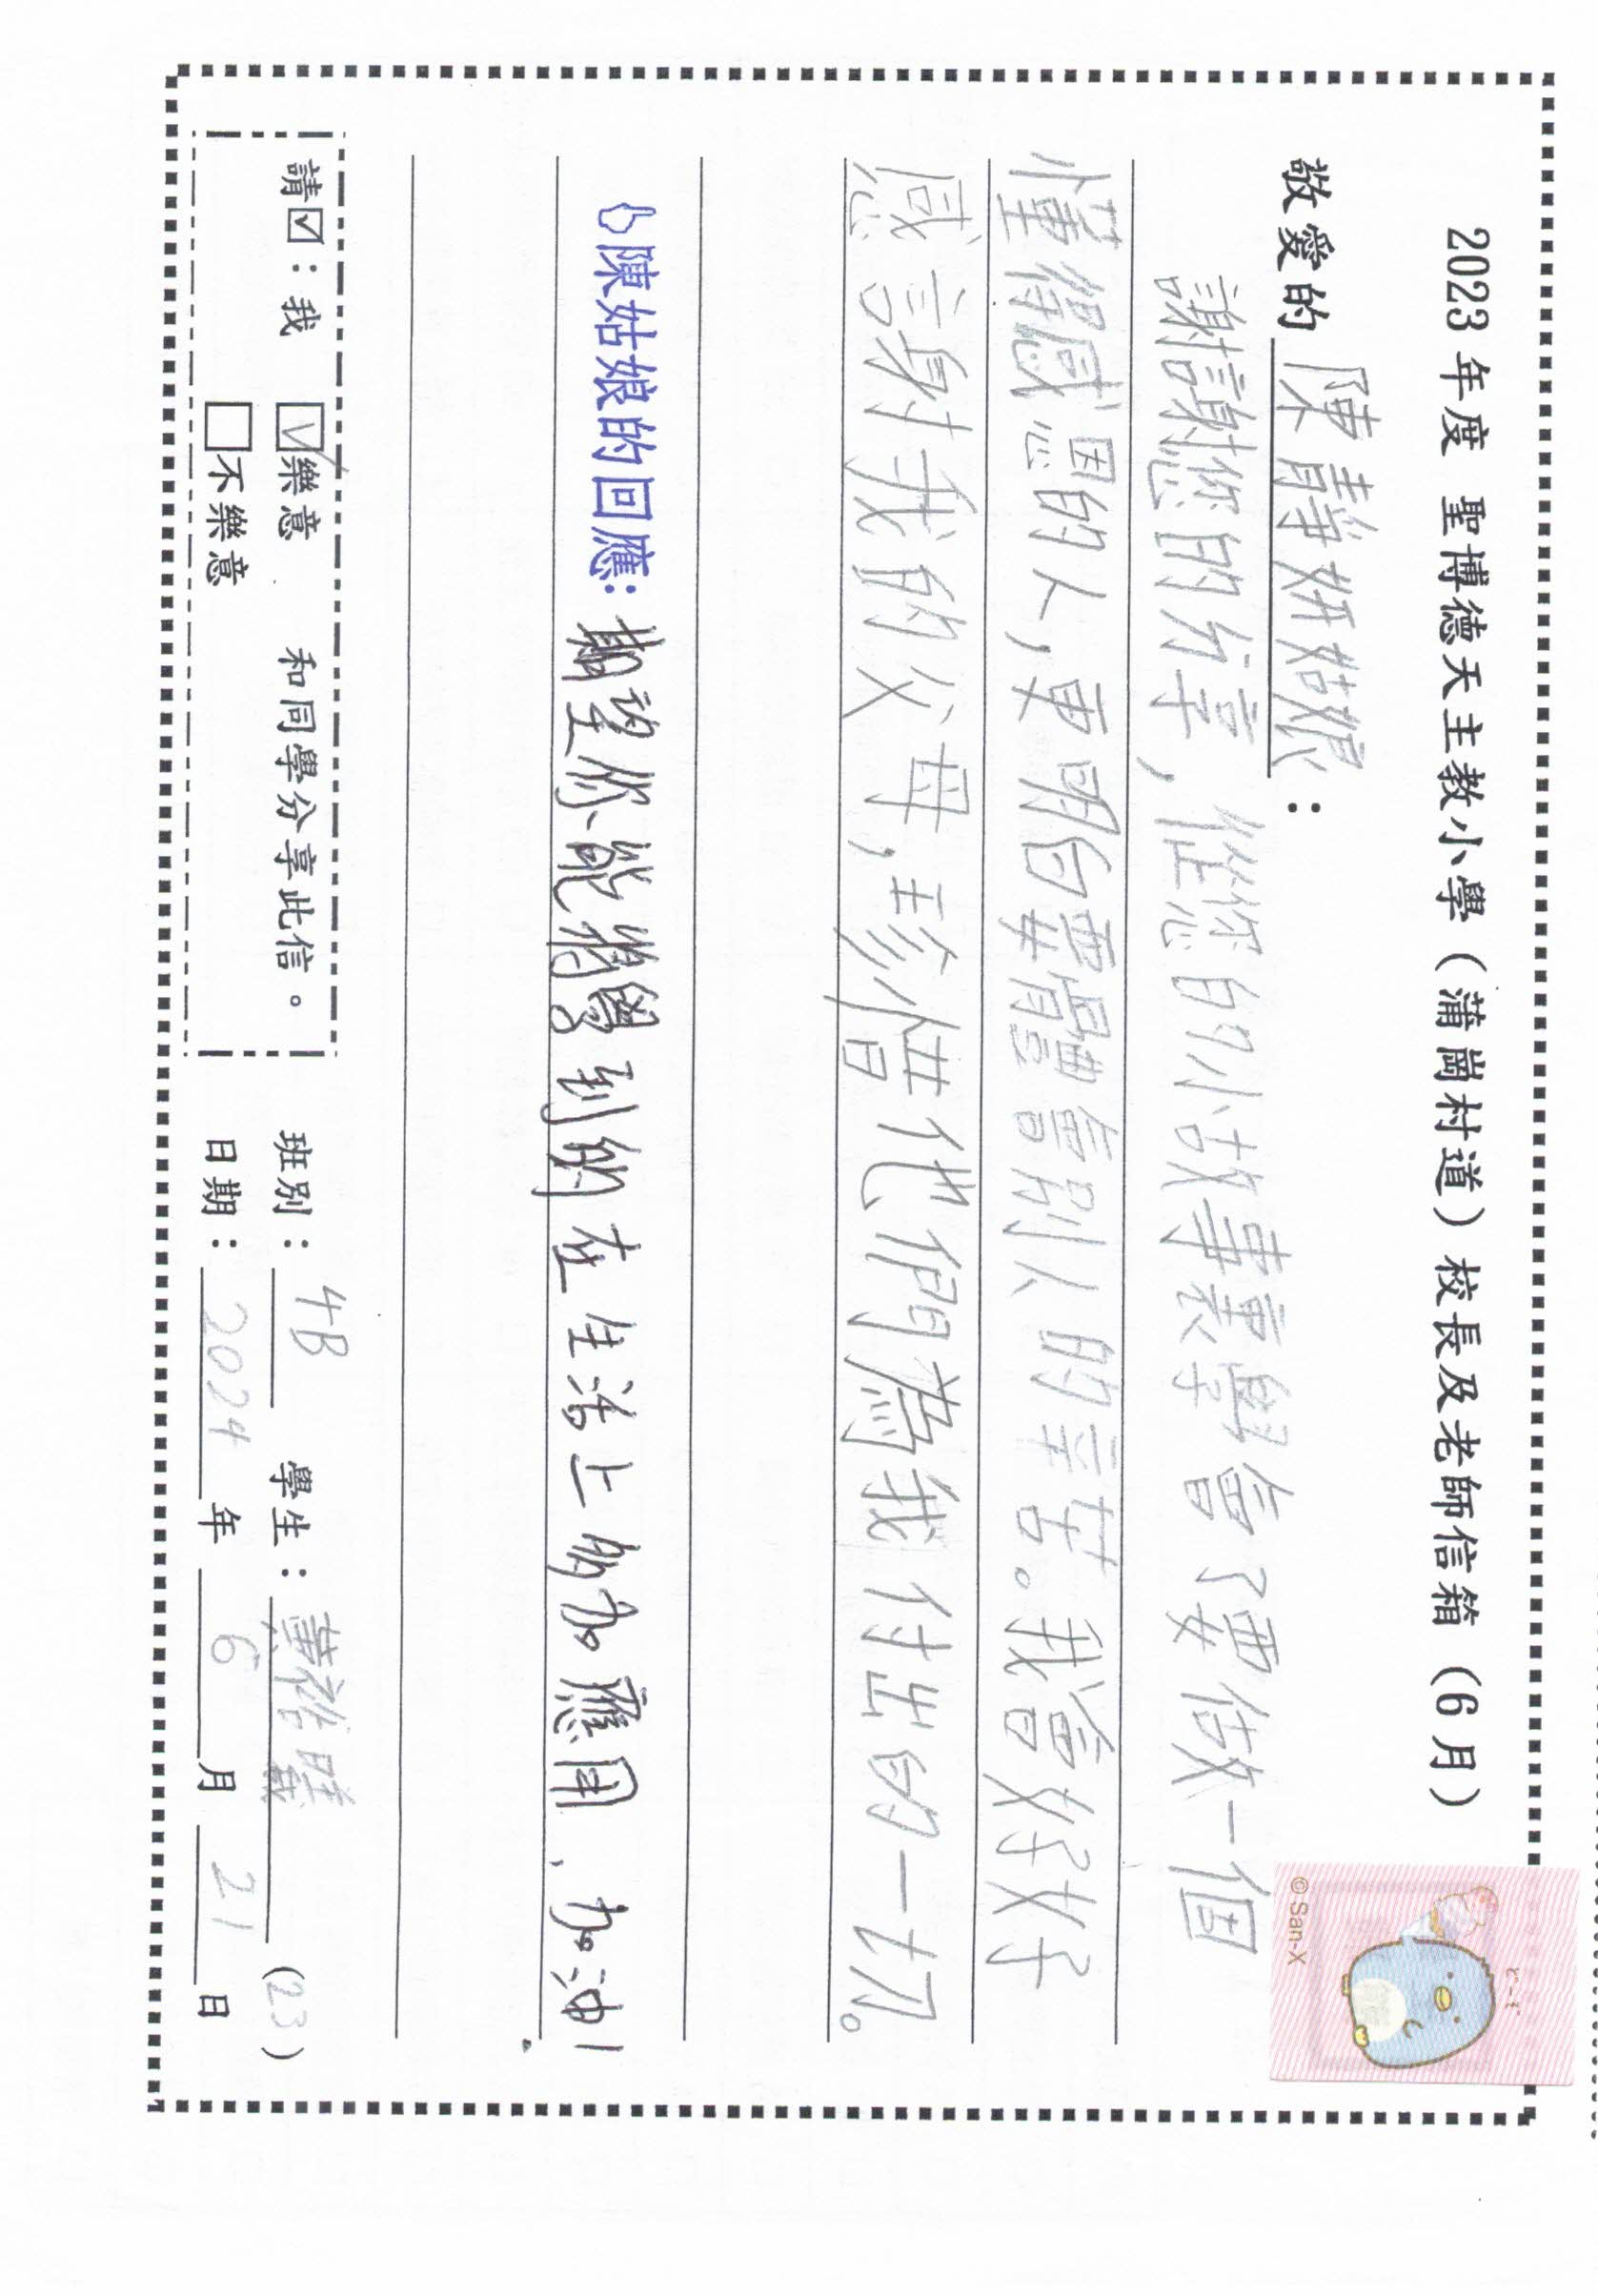 2023 年度 聖博德天主教小學（蒲崗村道）校長及老師信箱（6月）
敬愛的 陳靜妍姑娘：
謝謝您的分享，從您的小故事裏學會了要做一個
懂得感恩的人，更明白要體會別人的辛苦。我會好好
感謝我的父母，珍惜他們為我付出的一切。
陳姑娘的回應：期望你能將學到的在生活上多加應用，加油！
請☑：我 ☑樂意 和同學分享此信。
□不樂意
班別：4B 學生：黃裕 (23)
日期：2024年6月21日
© San-X
どーぞ